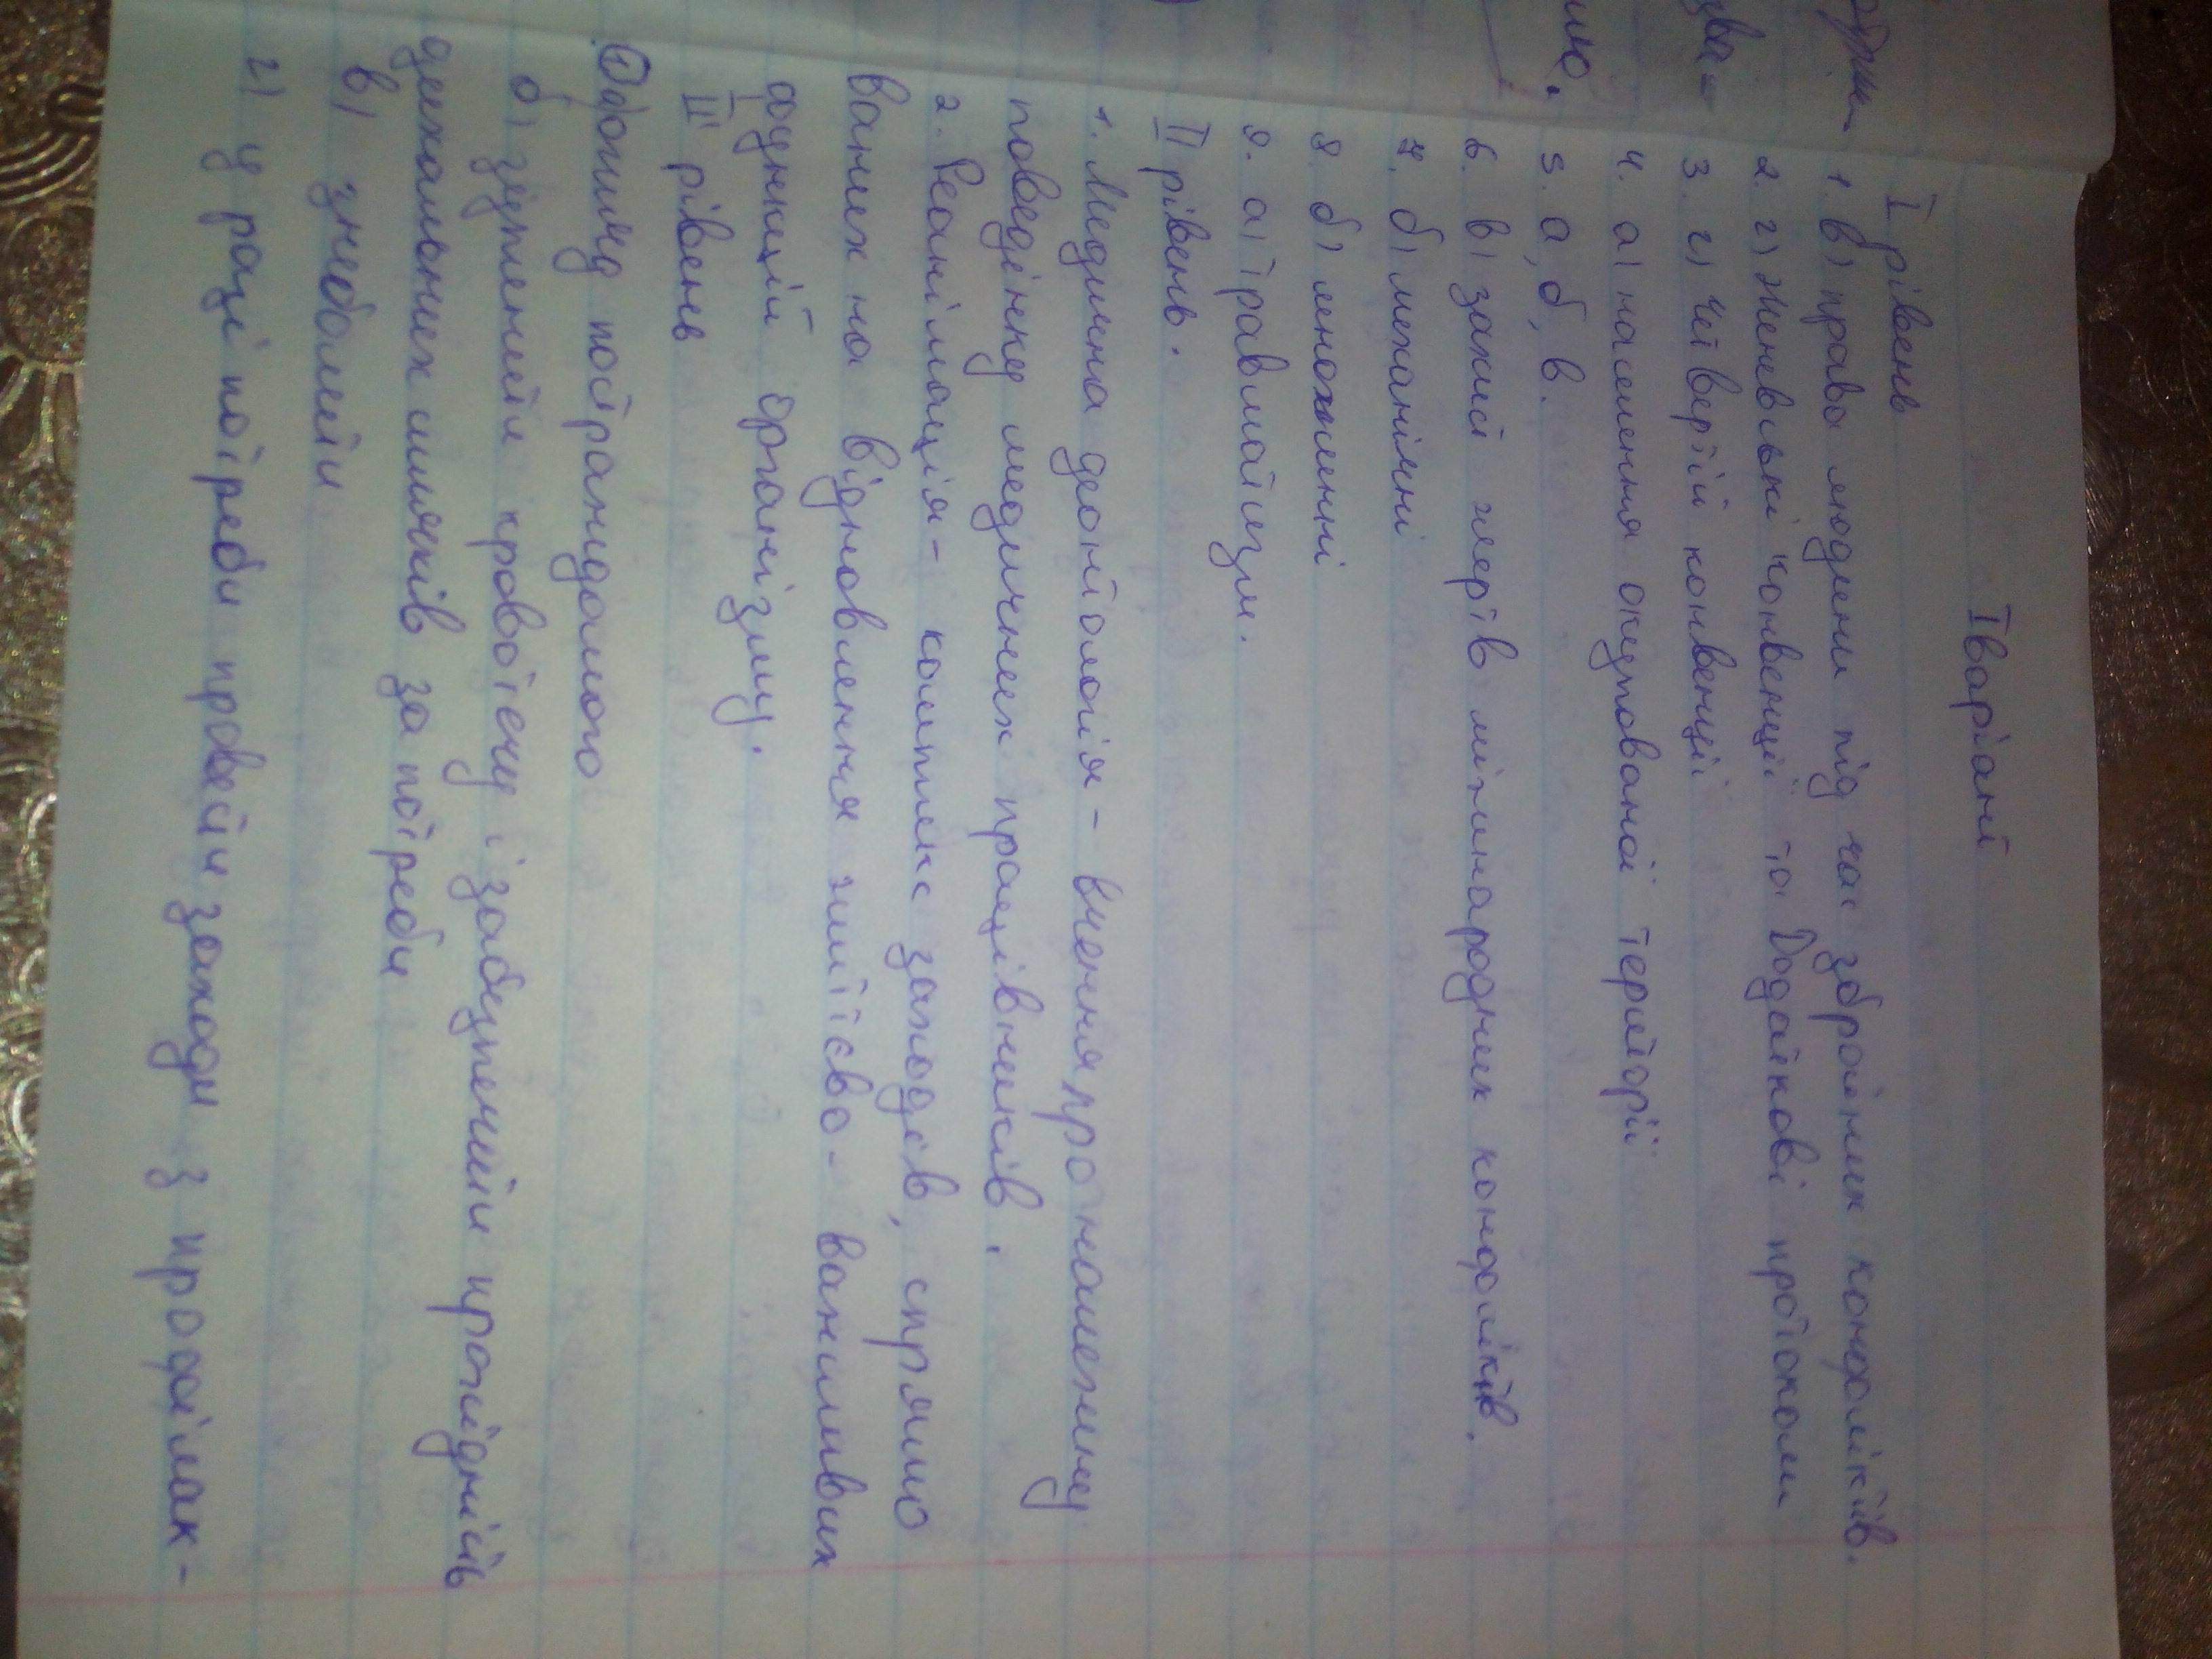 І варіант
І рівень
1. в) право людини під час збройних конфліктів.
2. г) Женевські конвенції та Додаткові протоколи
3. г) четвертій конвенції
4. а) населення окупованої території
5. а, б, в.
6. в) захист жертв міжнародних конфліктів.
7. б) механічні
8. б) множинні
9. а) травматизм.
ІІ рівень.
1. Медична деонтологія - вчення про належну
поведінку медичних працівників.
2. Реанімація - комплекс заходів, спрямо
ваних на відновлення життєво - важливих
функцій організму.
ІІІ рівень
① а) допомід постраждалого
б) зупинити кровотечу і забезпечити прохідність
дихальних шляхів за потреби
в) знеболити
г) у разі потреби провести заходи з профілак-
зва-